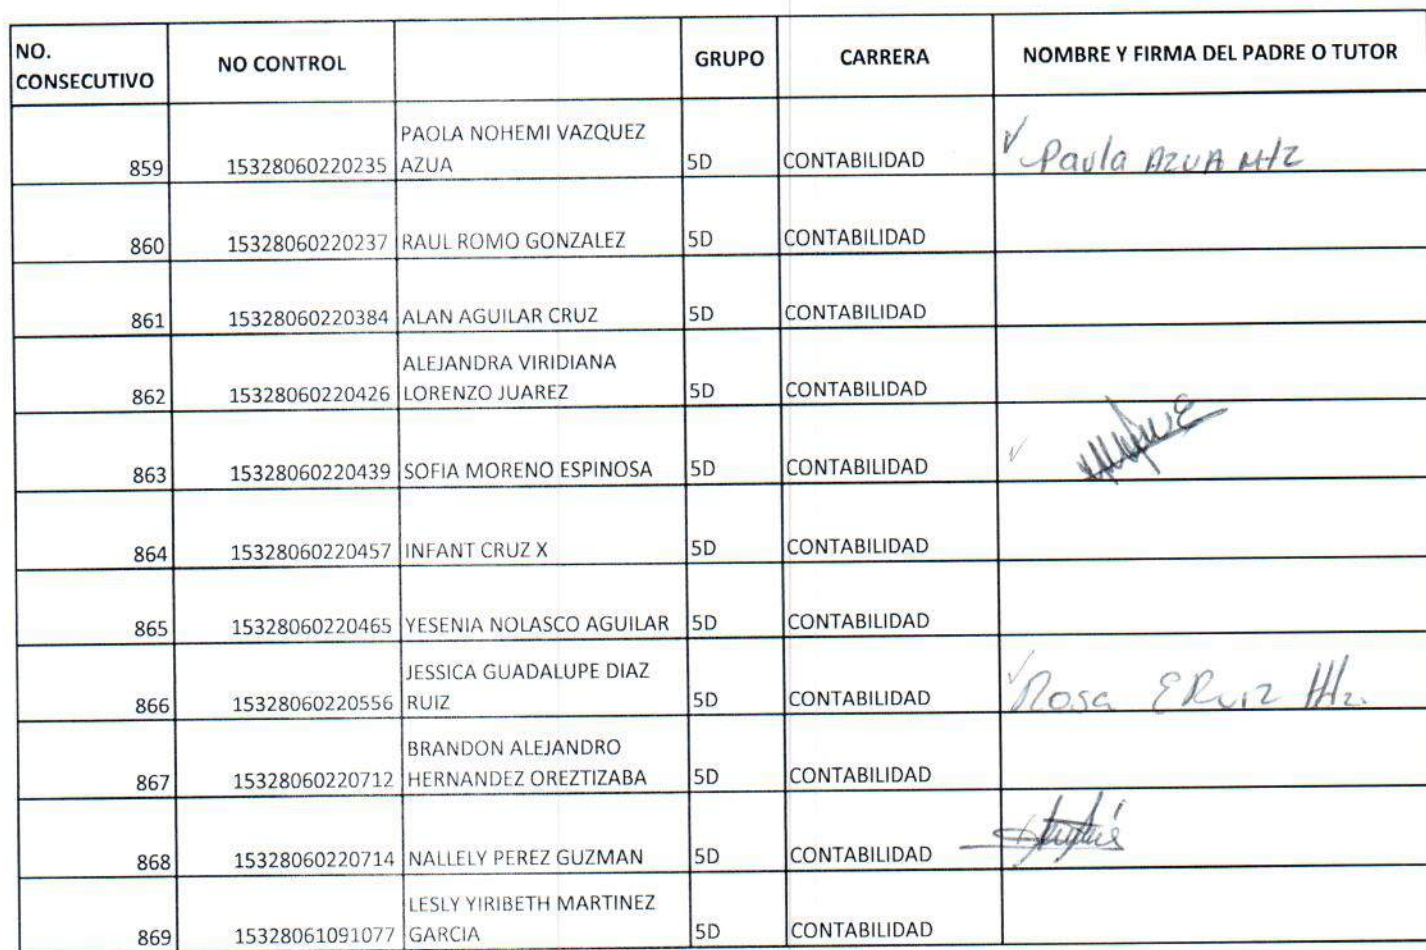 NO. CONSECUTIVO NO CONTROL GRUPO CARRERA NOMBRE Y FIRMA DEL PADRE O TUTOR
859 15328060220235 PAOLA NOHEMI VAZQUEZ AZUA 5D CONTABILIDAD Paula AZUA Mtz
860 15328060220237 RAUL ROMO GONZALEZ 5D CONTABILIDAD
861 15328060220384 ALAN AGUILAR CRUZ 5D CONTABILIDAD
862 15328060220426 ALEJANDRA VIRIDIANA LORENZO JUAREZ 5D CONTABILIDAD
863 15328060220439 SOFIA MORENO ESPINOSA 5D CONTABILIDAD
864 15328060220457 INFANT CRUZ X 5D CONTABILIDAD
865 15328060220465 YESENIA NOLASCO AGUILAR 5D CONTABILIDAD
866 15328060220556 JESSICA GUADALUPE DIAZ RUIZ 5D CONTABILIDAD Rosa E Ruiz Hdz.
867 15328060220712 BRANDON ALEJANDRO HERNANDEZ OREZTIZABA 5D CONTABILIDAD
868 15328060220714 NALLELY PEREZ GUZMAN 5D CONTABILIDAD
869 15328061091077 LESLY YIRIBETH MARTINEZ GARCIA 5D CONTABILIDAD